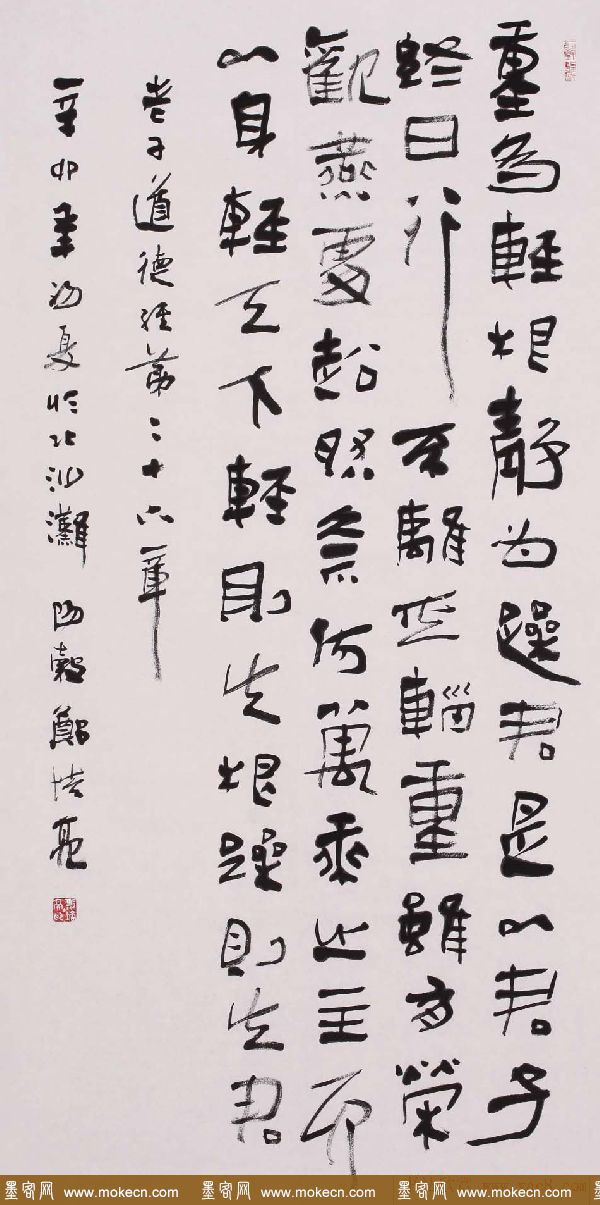 重為輕根靜为躁君是以君子
終日行不離其輜重雖有榮
觀燕處超然奈何萬乘之主而
以身輕天下輕則失根躁則失君
老子道德經第二十六章
辛卯年初夏於北沙灘 陽穀鄭培亮
墨客网 www.mokecn.com 墨客网 www.mokecn.com 墨客网 www.mokecn.com